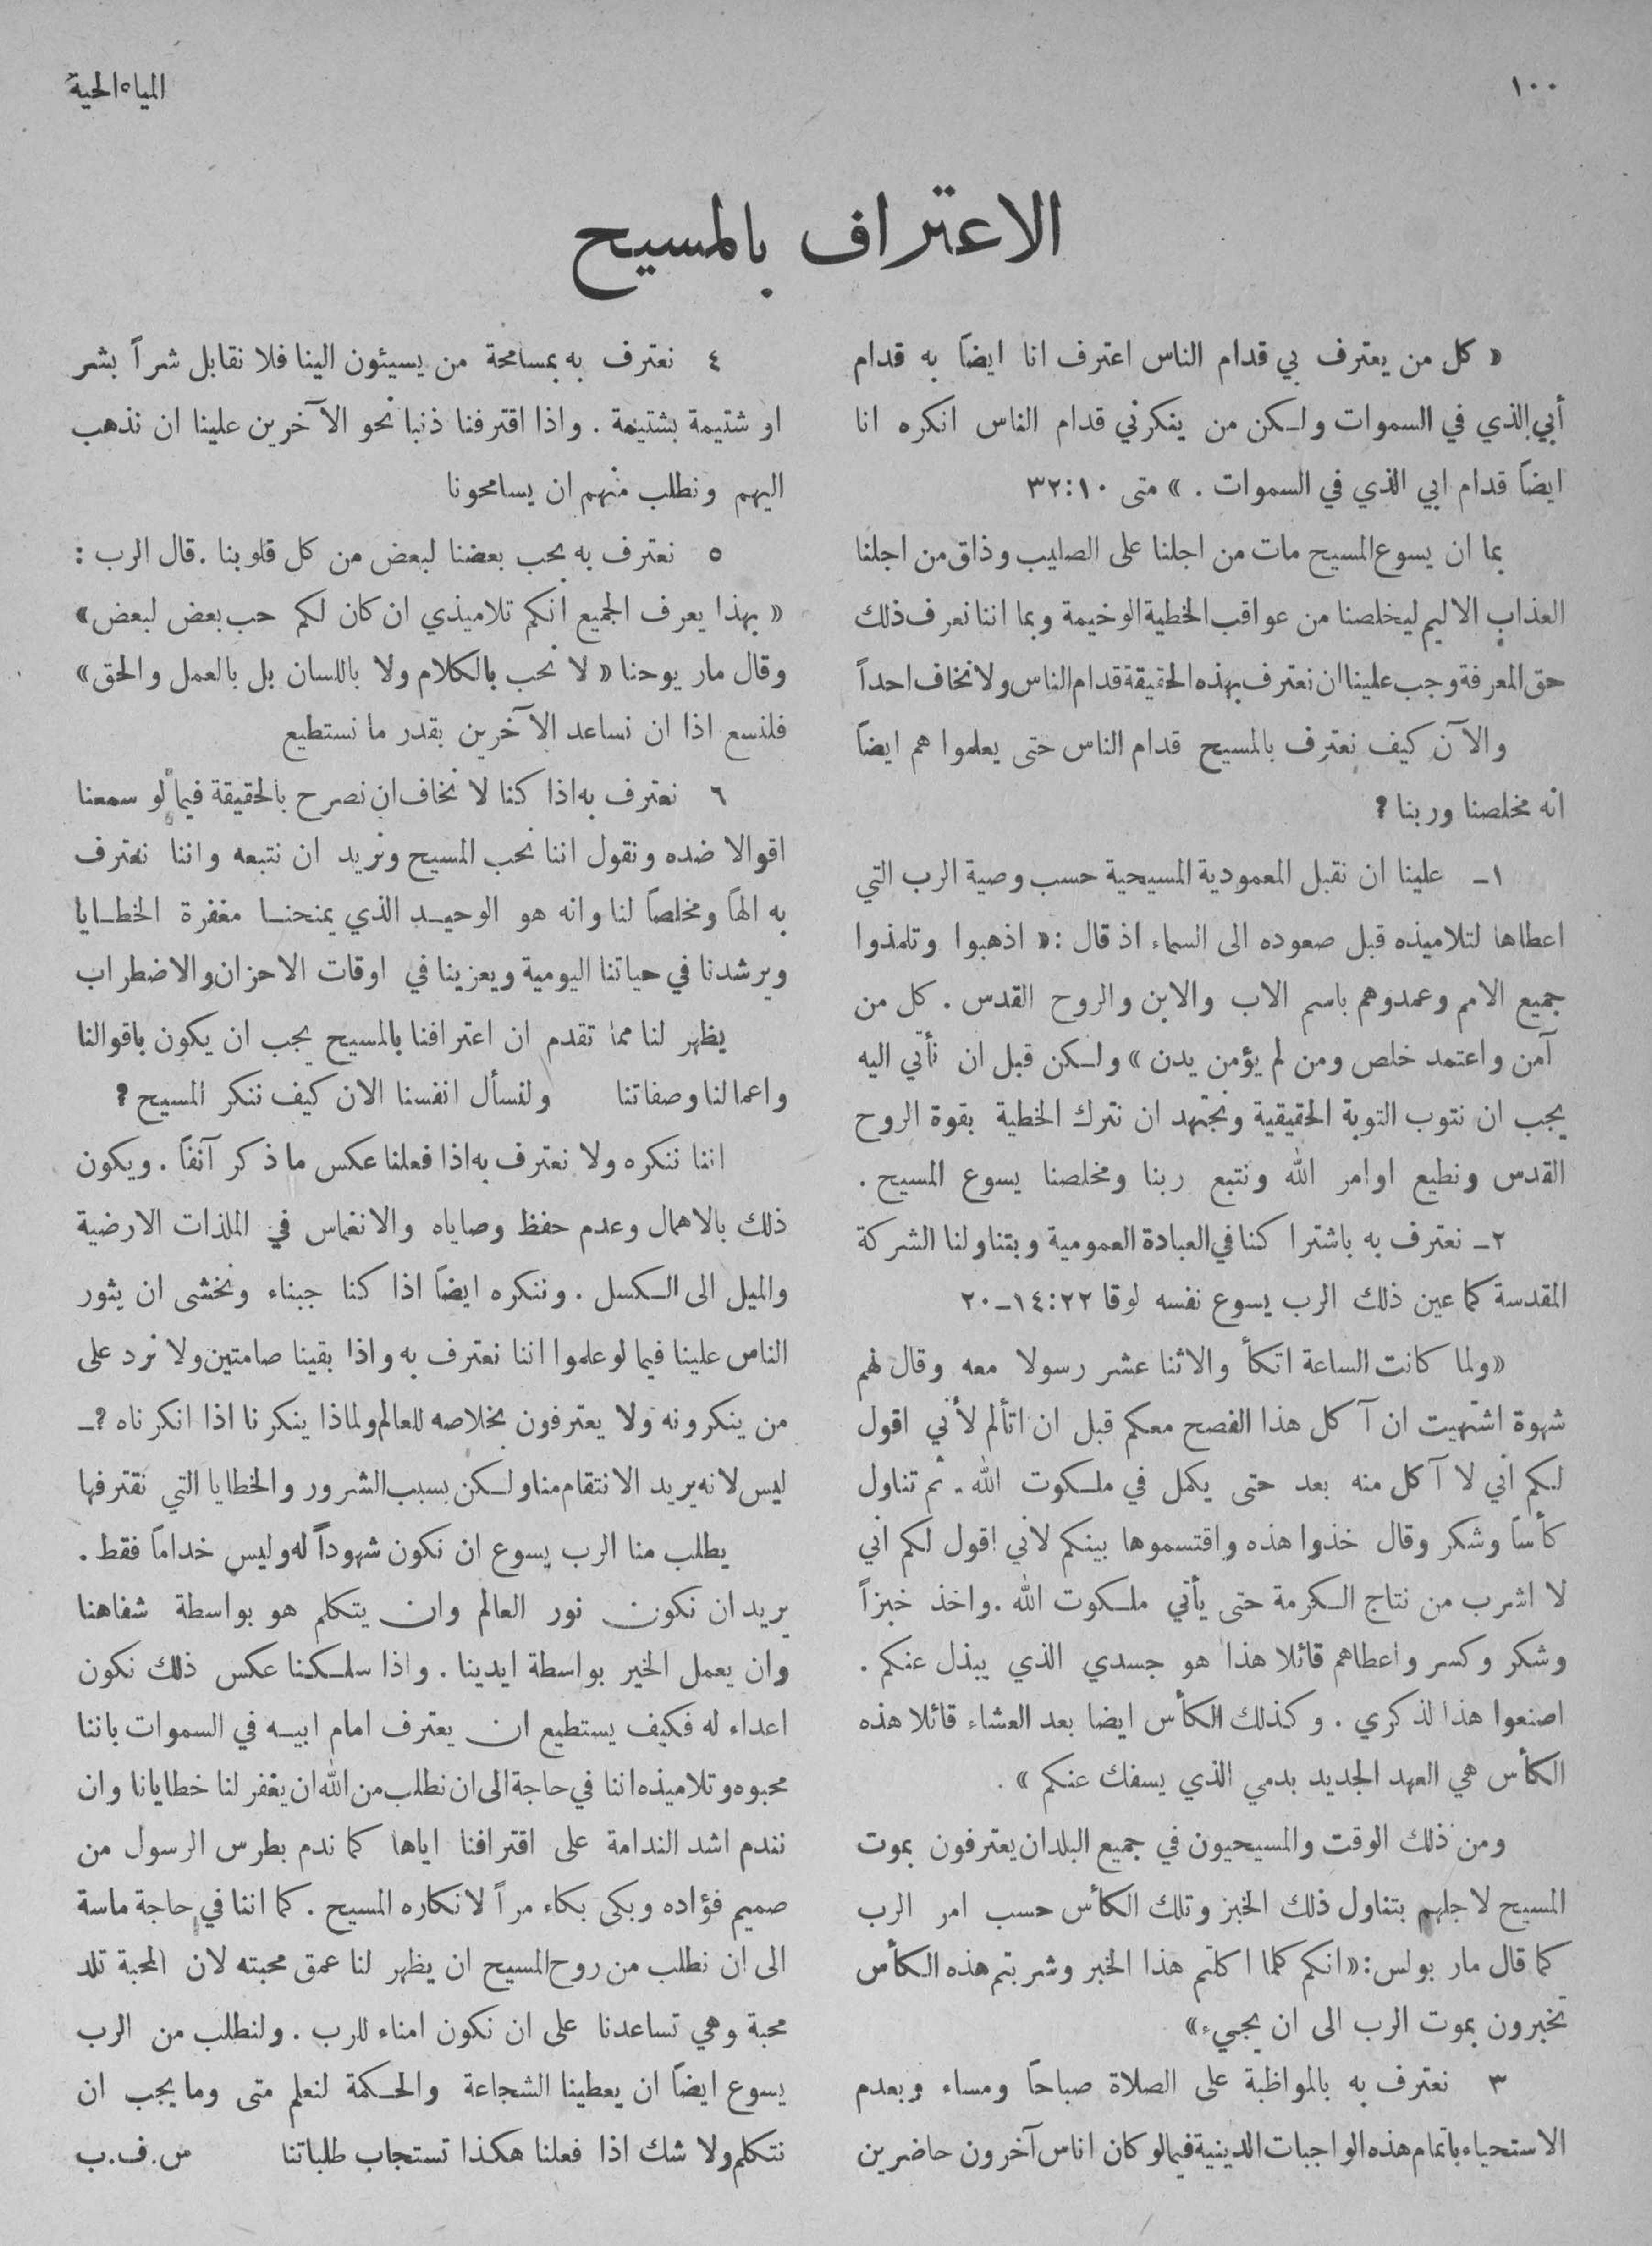 ١٠٠
المياه الحية
الاعتراف بالمسيح
« كل من يعترف بي قدام الناس اعترف انا ايضاً به قدام
أبي الذي في السموات ولكن من ينكرني قدام الناس انكره انا
ايضاً قدام ابي الذي في السموات . » متى ١٠:٣٢
بما ان يسوع المسيح مات من اجلنا على الصليب وذاق من اجلنا
العذاب الاليم ليخلصنا من عواقب الخطية الوخيمة وبما اننا نعرف ذلك
حق المعرفة وجب علينا ان نعترف بهذه الحقيقة قدام الناس ولا نخاف احداً
والآن كيف نعترف بالمسيح قدام الناس حتى يعلموا هم ايضاً
انه مخلصنا وربنا ؟
١ـ علينا ان نقبل المعمودية المسيحية حسب وصية الرب التي
اعطاها لتلاميذه قبل صعوده الى السماء اذ قال :« اذهبوا وتلمذوا
جميع الامم وعمدوهم باسم الاب والابن والروح القدس . كل من
آمن واعتمد خلص ومن لم يؤمن يدن » ولكن قبل ان نأتي اليه
يجب ان نتوب التوبة الحقيقية ونجتهد ان نترك الخطية بقوة الروح
القدس ونطيع اوامر الله ونتبع ربنا ومخلصنا يسوع المسيح .
٢ـ نعترف به باشتراكنا في العبادة العمومية وبتناولنا الشركة
المقدسة كما عين ذلك الرب يسوع نفسه لوقا ٢٢:١٤ـ٢٠
«ولما كانت الساعة اتكأ والاثنا عشر رسولا معه وقال لهم
شهوة اشتهيت ان آكل هذا الفصح معكم قبل ان اتألم لأني اقول
لكم اني لا آكل منه بعد حتى يكمل في ملكوت الله . ثم تناول
كأساً وشكر وقال خذوا هذه واقتسموها بينكم لاني اقول لكم اني
لا اشرب من نتاج الكرمة حتى يأتي ملكوت الله .واخذ خبزاً
وشكر وكسر واعطاهم قائلا هذا هو جسدي الذي يبذل عنكم .
اصنعوا هذا لذكري . وكذلك الكأس ايضا بعد العشاء قائلا هذه
الكأس هي العهد الجديد بدمي الذي يسفك عنكم » .
ومن ذلك الوقت والمسيحيون في جميع البلدان يعترفون بموت
المسيح لاجلهم بتناول ذلك الخبز وتلك الكأس حسب امر الرب
كما قال مار بولس :«انكم كلما اكلتم هذا الخبر وشربتم هذه الكأس
تخبرون بموت الرب الى ان يجيء»
٣ نعترف به بالمواظبة على الصلاة صباحاً ومساء وبعدم
الاستحياء باتمام هذه الواجبات الدينية فيما لو كان اناس آخرون حاضرين
٤ نعترف به بمسامحة من يسيئون الينا فلا نقابل شراً بشر
او شتيمة بشتيمة . واذا اقترفنا ذنبا نحو الآخرين علينا ان نذهب
اليهم ونطلب منهم ان يسامحونا
٥ نعترف به بحب بعضنا لبعض من كل قلوبنا .قال الرب :
« بهذا يعرف الجميع انكم تلاميذي ان كان لكم حب بعض لبعض»
وقال مار يوحنا « لا نحب بالكلام ولا باللسان بل بالعمل والحق»
فلنسع اذا ان نساعد الآخرين بقدر ما نستطيع
٦ نعترف به اذا كنا لا نخاف ان نصرح بالحقيقة فيما لو سمعنا
اقوالا ضده ونقول اننا نحب المسيح ونريد ان نتبعه واننا نعترف
به الهاً ومخلصاً لنا وانه هو الوحيد الذي يمنحنا مغفرة الخطايا
ويرشدنا في حياتنا اليومية ويعزينا في اوقات الاحزان والاضطراب
يظهر لنا مما تقدم ان اعترافنا بالمسيح يجب ان يكون باقوالنا
واعمالنا وصفاتنا ولنسأل انفسنا الان كيف ننكر المسيح ؟
اننا ننكره ولا نعترف به اذا فعلنا عكس ما ذكر آنفاً . ويكون
ذلك بالاهمال وعدم حفظ وصاياه والانغماس في الملذات الارضية
والميل الى الكسل . وننكره ايضاً اذا كنا جبناء ونخشى ان يثور
الناس علينا فيما لو علموا اننا نعترف به واذا بقينا صامتين ولا نرد على
من ينكرونه ولا يعترفون بخلاصه للعالم ولماذا ينكرنا اذا انكرناه ؟ـ
ليس لانه يريد الانتقام منا ولكن بسبب الشرور والخطايا التي نقترفها
يطلب منا الرب يسوع ان نكون شهوداً له وليس خداماً فقط .
يريد ان نكون نور العالم وان يتكلم هو بواسطة شفاهنا
وان يعمل الخير بواسطة ايدينا . واذا سلكنا عكس ذلك نكون
اعداء له فكيف يستطيع ان يعترف امام ابيه في السموات باننا
محبوه وتلاميذه اننا في حاجة الى ان نطلب من الله ان يغفر لنا خطايانا وان
نندم اشد الندامة على اقترافنا اياها كما ندم بطرس الرسول من
صميم فؤاده وبكى بكاء مراً لانكاره المسيح . كما اننا في حاجة ماسة
الى ان نطلب من روح المسيح ان يظهر لنا عمق محبته لان المحبة تلد
محبة وهي تساعدنا على ان نكون امناء للرب . ولنطلب من الرب
يسوع ايضاً ان يعطينا الشجاعة والحكمة لنعلم متى وما يجب ان
نتكلم ولا شك اذا فعلنا هكذا تستجاب طلباتنا س.ف.ب